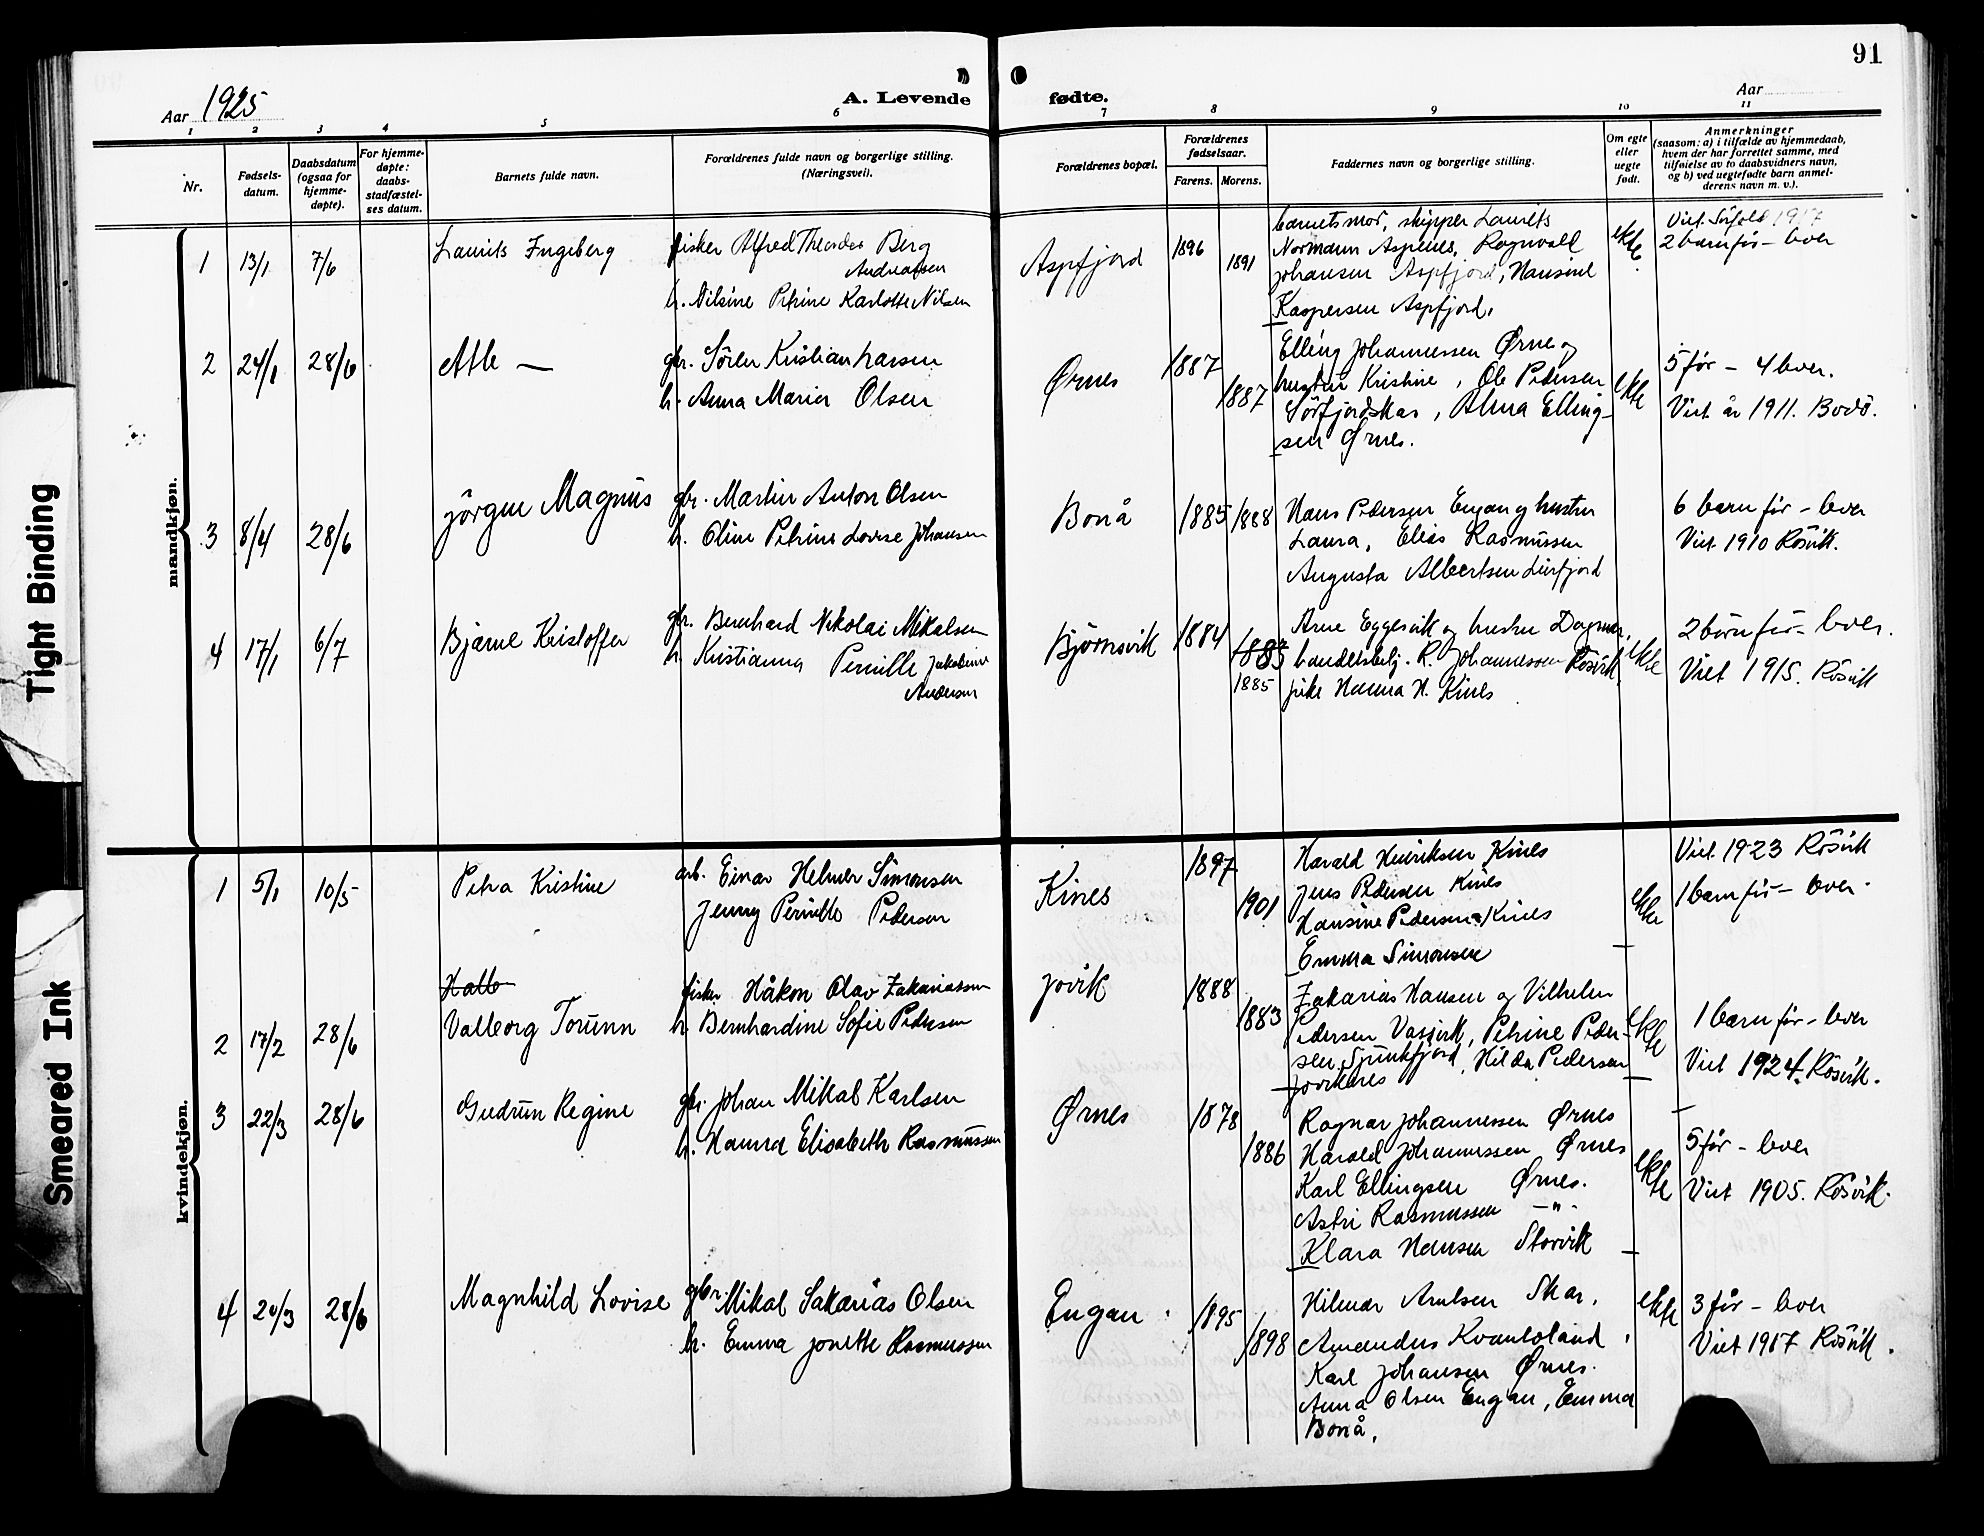 91
Aar 1925
A. Levende
fødte.
Aar
1 2 3 4 5 6 7 8 9 10 11
Nr.
Fødsels-
datum.
Daabsdatum
(ogsaa for
hjemme-
døpte).
For hjemme-
døpte:
daabs-
stadfæstel-
ses datum.
Barnets fulde navn.
Forældrenes fulde navn og borgerlige stilling.
(Næringsvei).
Forældrenes bopæl.
Forældrenes
fødselsaar.
Farens. Morens.
Faddernes navn og borgerlige stilling.
Om egte
eller
uegte
født.
Anmerkninger
(saasom: a) i tilfælde av hjemmedaab,
hvem der har forrettet samme, med
tilføielse av to daabsvidners navn,
og b) ved uegtefødte barn anmel-
derens navn m. v.).
mandkjøn.
1 13/1 7/6
Laurits Ingeberg
fisker Alfred Theodor Berg
Andreassen
h. Nilsine Petrine Karlotte Nilsen
Aspfjord
1896
1891
barnets mor, skipper Laurits
Normann Aspenes, Ragnvall
Johansen Aspfjord, Hansine
Kaspersen Aspfjord.
ekte
Viet Sørfold 1917
2 barn før - lever
2 24/1 28/6
Atle —
gbr. Sören Kristian Larsen
h. Anna Maria Olsen
Ørnes
1887
1887
Elling Johannessen Ørnes og
hustru Kristine, Ole Pedersen
Sörfjordskar, Alma Elling-
sen Ørnes.
ekte
5 før - 4 lever.
Viet år 1911. Bodö.
3 8/4 28/6
Jörgen Magnus
gbr. Martin Anton Olsen
h. Oline Petrine Lovise Johansen
Bonå
1885
1888
Hans Pedersen Engan og hustru
Laura, Elias Rasmussen
Augusta Albertsen Leirfjord
6 barn før - lever
Viet 1910 Rösvik.
4 17/1 6/7
Bjarne Kristoffer
gbr. Bernhard Nikolai Mikalsen
h. Kristianna Pernille Jakobine
Andersen
Bjørnsvik
1884
1883
1885
Arne Eggesvik og hustru Dagmar,
handelsbetj. R. Johannessen Rösvik,
pike Hanna H. Kines
ekte
2 børn før - lever.
Viet 1915. Rösvik
kvindekjøn.
1 5/1 10/5
Petra Kristine
arb. Einar Helmer Simonsen
Jenny Pernille Pedersen
Kines
1897
1901
Harald Henriksen Kines
Jens Pedersen Kines
Hansine Pedersen Kines
Emma Simonsen
ekte
Viet 1923 Rösvik
1 barn før - lever.
2 17/2 28/6
Halle
Valborg Torunn
fisker Håkon Olav Zakariassen
h. Bernhardine Sofie Pedersen
Jovik
1888
1883
Zakarias Hansen og Vilhelm
Pedersen Vassvik, Petrine Peder-
sen Sjunkfjord, Hilda Pedersen
Joviknes
ekte
1 barn før - lever
Viet 1924. Rösvik.
3 22/3 28/6
Gudrun Regine
gbr. Johan Mikal Karlsen
h. Hanna Elisabeth Rasmussen
Ørnes
1878
1886
Ragnar Johannessen Ørnes
Harald Johannessen Ørnes
Karl Ellingsen Ørnes.
Astri Rasmussen —"—
Klara Hansen Storvik
ekte
5 før - lever
Viet 1905. Rösvik.
4 20/3 28/6
Magnhild Lovise
gbr. Mikal Sakarias Olsen
h. Emma Jonette Rasmussen
Engan
1895
1898
Hilmar Arntsen Skar.
Amandus Kvantoland,
Karl Johansen Ørnes.
Anna Olsen Engan, Emma
Bonå.
ekte
3 før - lever
Viet 1917 Rösvik.
Tight Binding
Smeared Ink